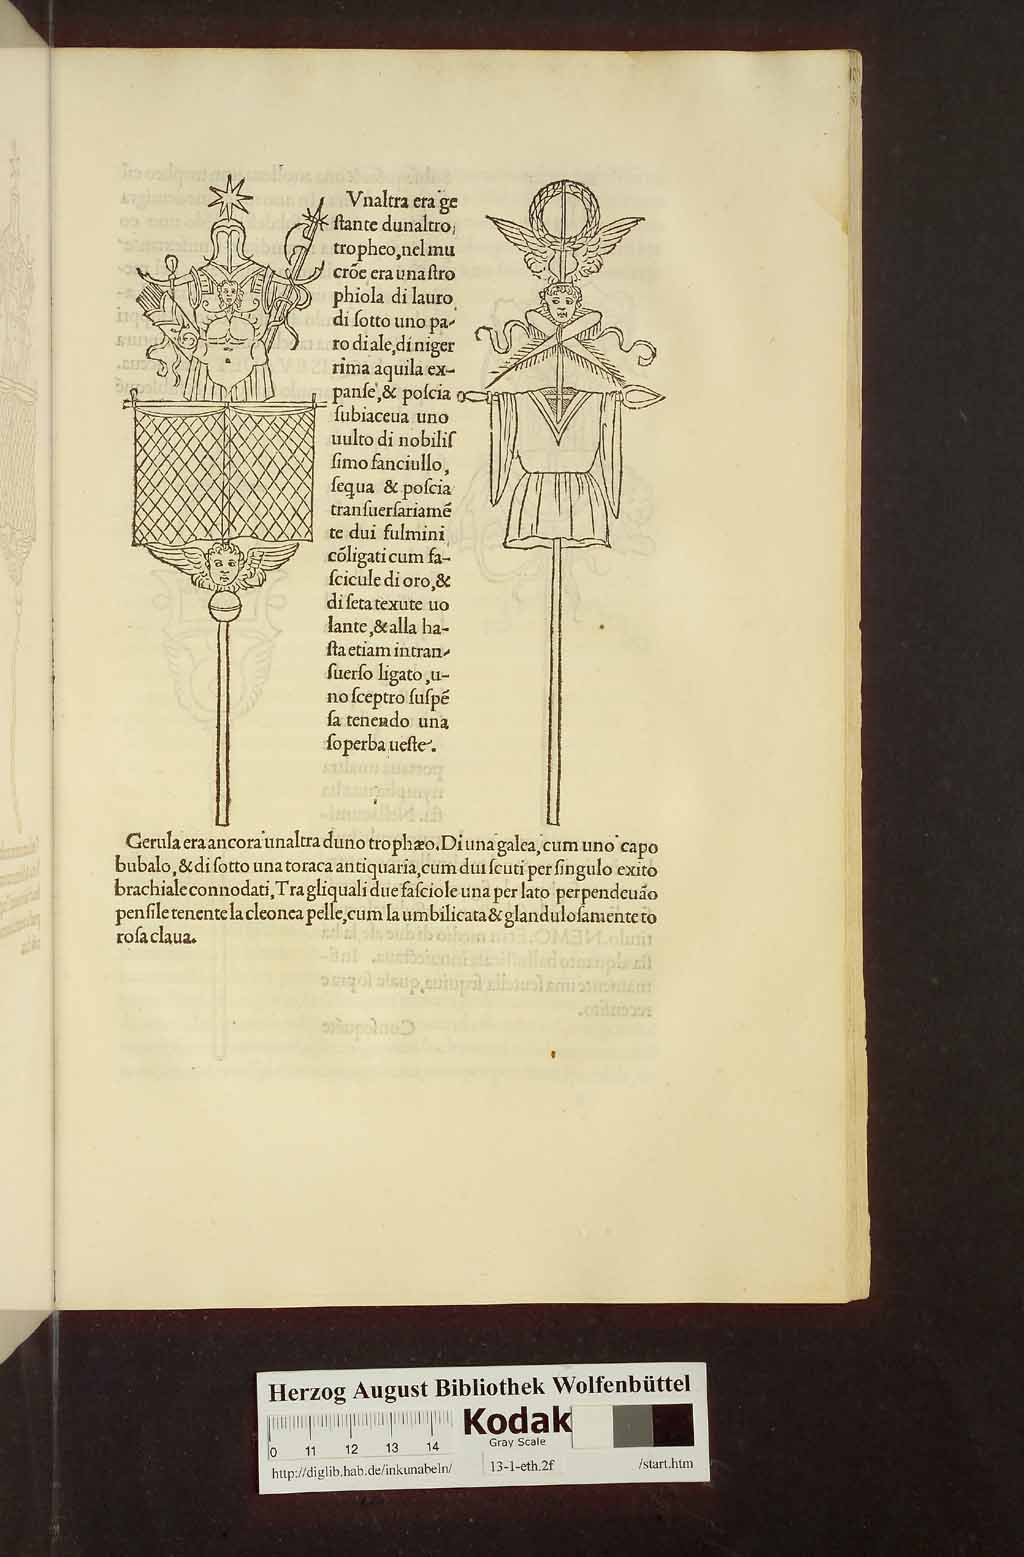 Vnaltra era ge
ſtante dunaltro,
tropheo, nel mu
crõe era una ſtro
phiola di lauro
di ſotto uno pa-
ro di ale, di niger
rima aquila ex-
panſe, & poſcia
ſubiaceua uno
uulto di nobiliſ
ſimo fanciullo,
ſequa & poſcia
tranſuerſariamẽ
te dui fulmini
cõligati cum fa-
ſcicule di oro, &
di ſeta texute uo
lante, & alla ha-
ſta etiam in tran-
ſuerſo ligato, u-
no ſceptro ſuſpẽ
ſa tenendo una
ſoperba ueſte.
Gerula era ancora unaltra duno trophæo. Di una galea, cum uno capo
bubalo, & di ſotto una toraca antiquaria, cum dui ſcuti per ſingulo exito
brachiale connodati, Tra gli quali due faſciole una per lato perpendeuão
penſile tenente la cleonea pelle, cum la umbilicata & glanduloſamente to
roſa claua.
Herzog August Bibliothek Wolfenbüttel
Kodak
Gray Scale
0 11 12 13 14
http://diglib.hab.de/inkunabeln/ 13-1-eth.2f /start.htm